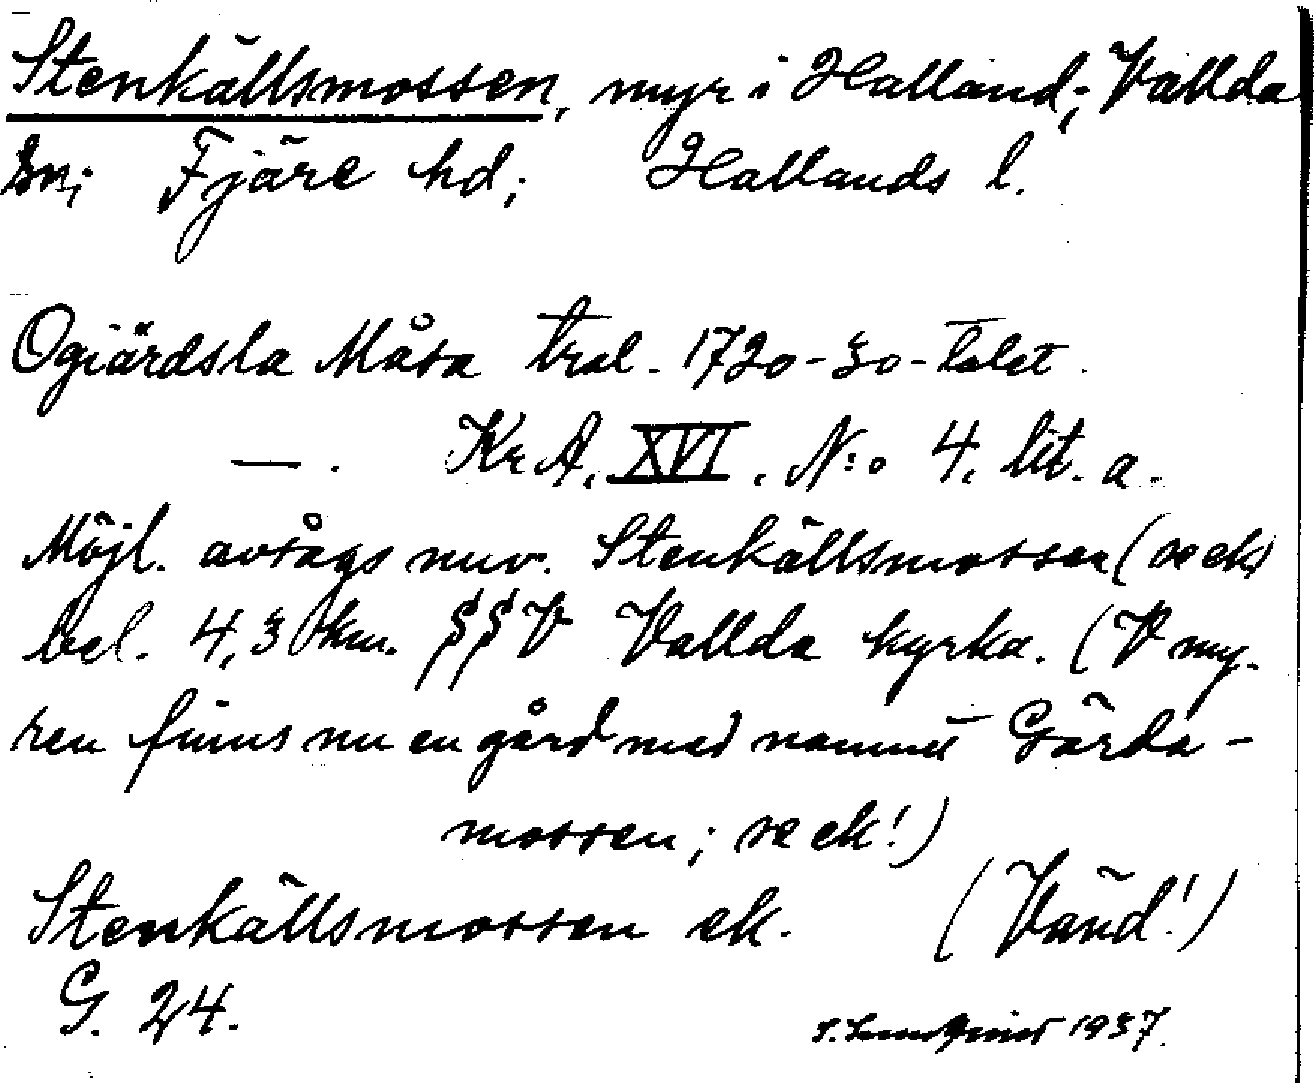 Stenkällsmossen, myr i Halland; Vallda
sn; Fjäre hd; Hallands l.
Ogiärdsla Måsa tral. 1720-30-talet.
—. KrA, XVI, N:o 4. lit. a.
Möjl. avsågs nuv. Stenkällsmossen (se ek)
bel. 4,3 km. V Vallda kyrka. (V my-
ren finns nu en gård med namnet Gärda-
mossen; se ek!)
Stenkällsmossen ek. (Vänd!)
G. 24.
S. 1937.